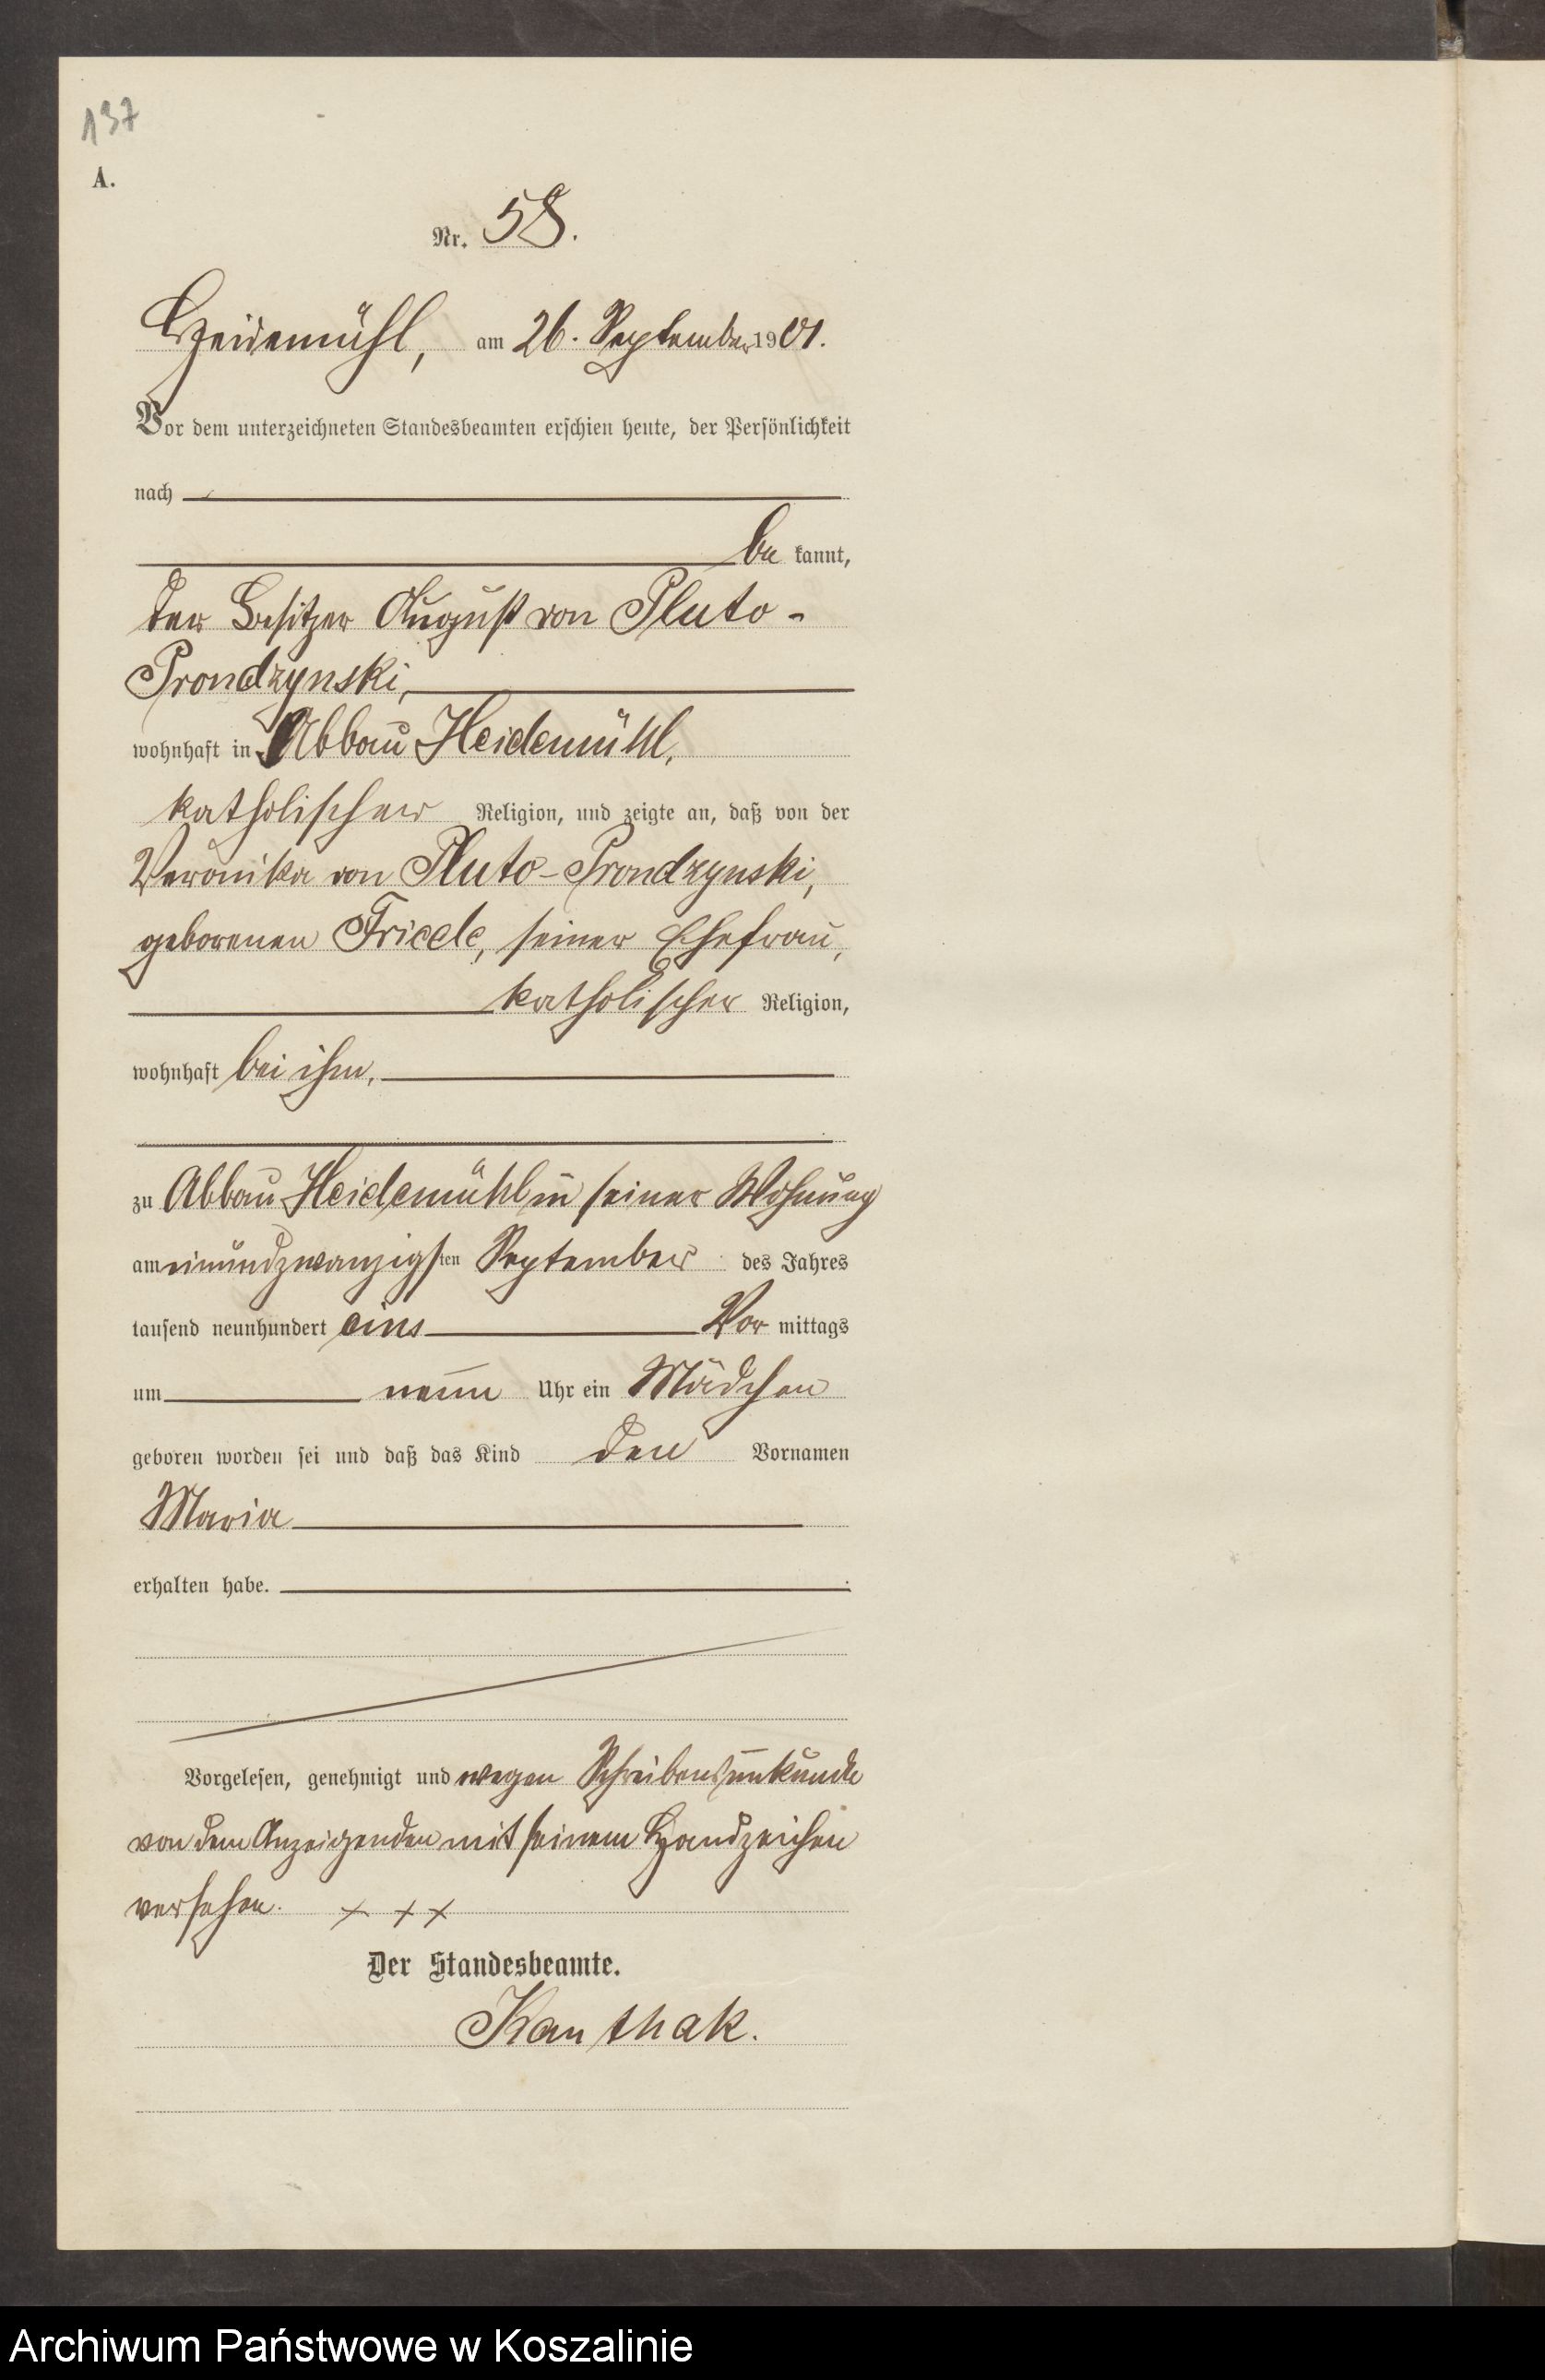 137
A.
Nr. 58.
Heidemühl, am 26. September 1901.
Vor dem unterzeichneten Standesbeamten erschien heute, der Persönlichkeit
nach
be kannt,
der Besitzer August von Pluto-
Prondzynski,
wohnhaft in Abbau Heidemühl,
katholischer Religion, und zeigte an, daß von der
Veronika von Pluto-Prondzynski,
geborenen Friede, seiner Ehefrau,
katholischer Religion,
wohnhaft bei ihm,
zu Abbau Heidemühl in seiner Wohnung
am einundzwanzigsten September des Jahres
tausend neunhundert eins Vor mittags
um neun Uhr ein Mädchen
geboren worden sei und daß das Kind den Vornamen
Maria
erhalten habe.
Vorgelesen, genehmigt und wegen Schreibensunkunde
von dem Anzeigenden mit seinem Handzeichen
versehen. + + +
Der Standesbeamte.
Kanthak.
Archiwum Państwowe w Koszalinie